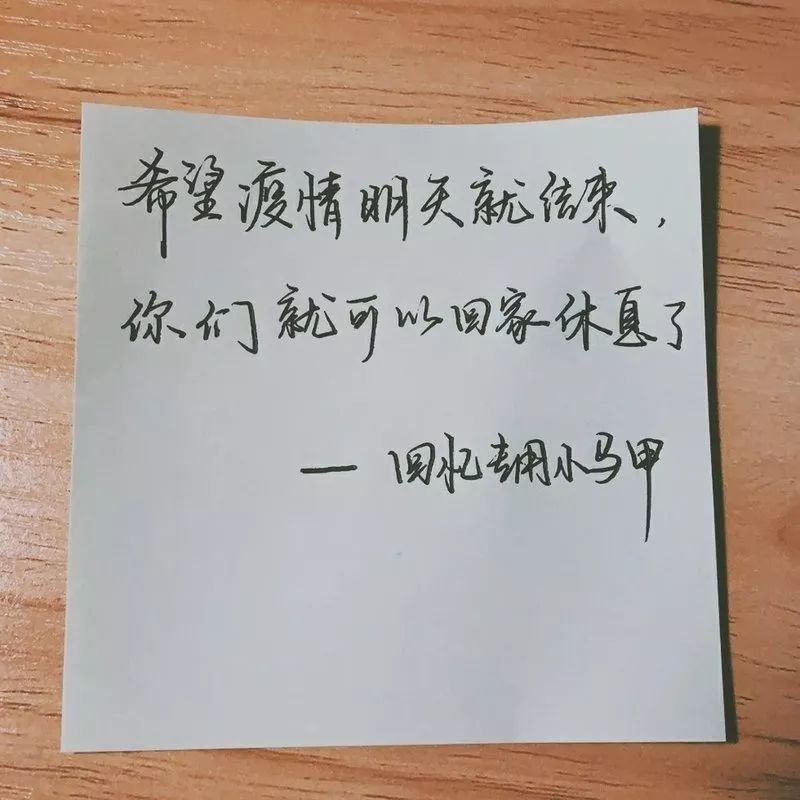 希望疫情明天就结束,
你们就可以回家休息了
— 回忆专用小马甲